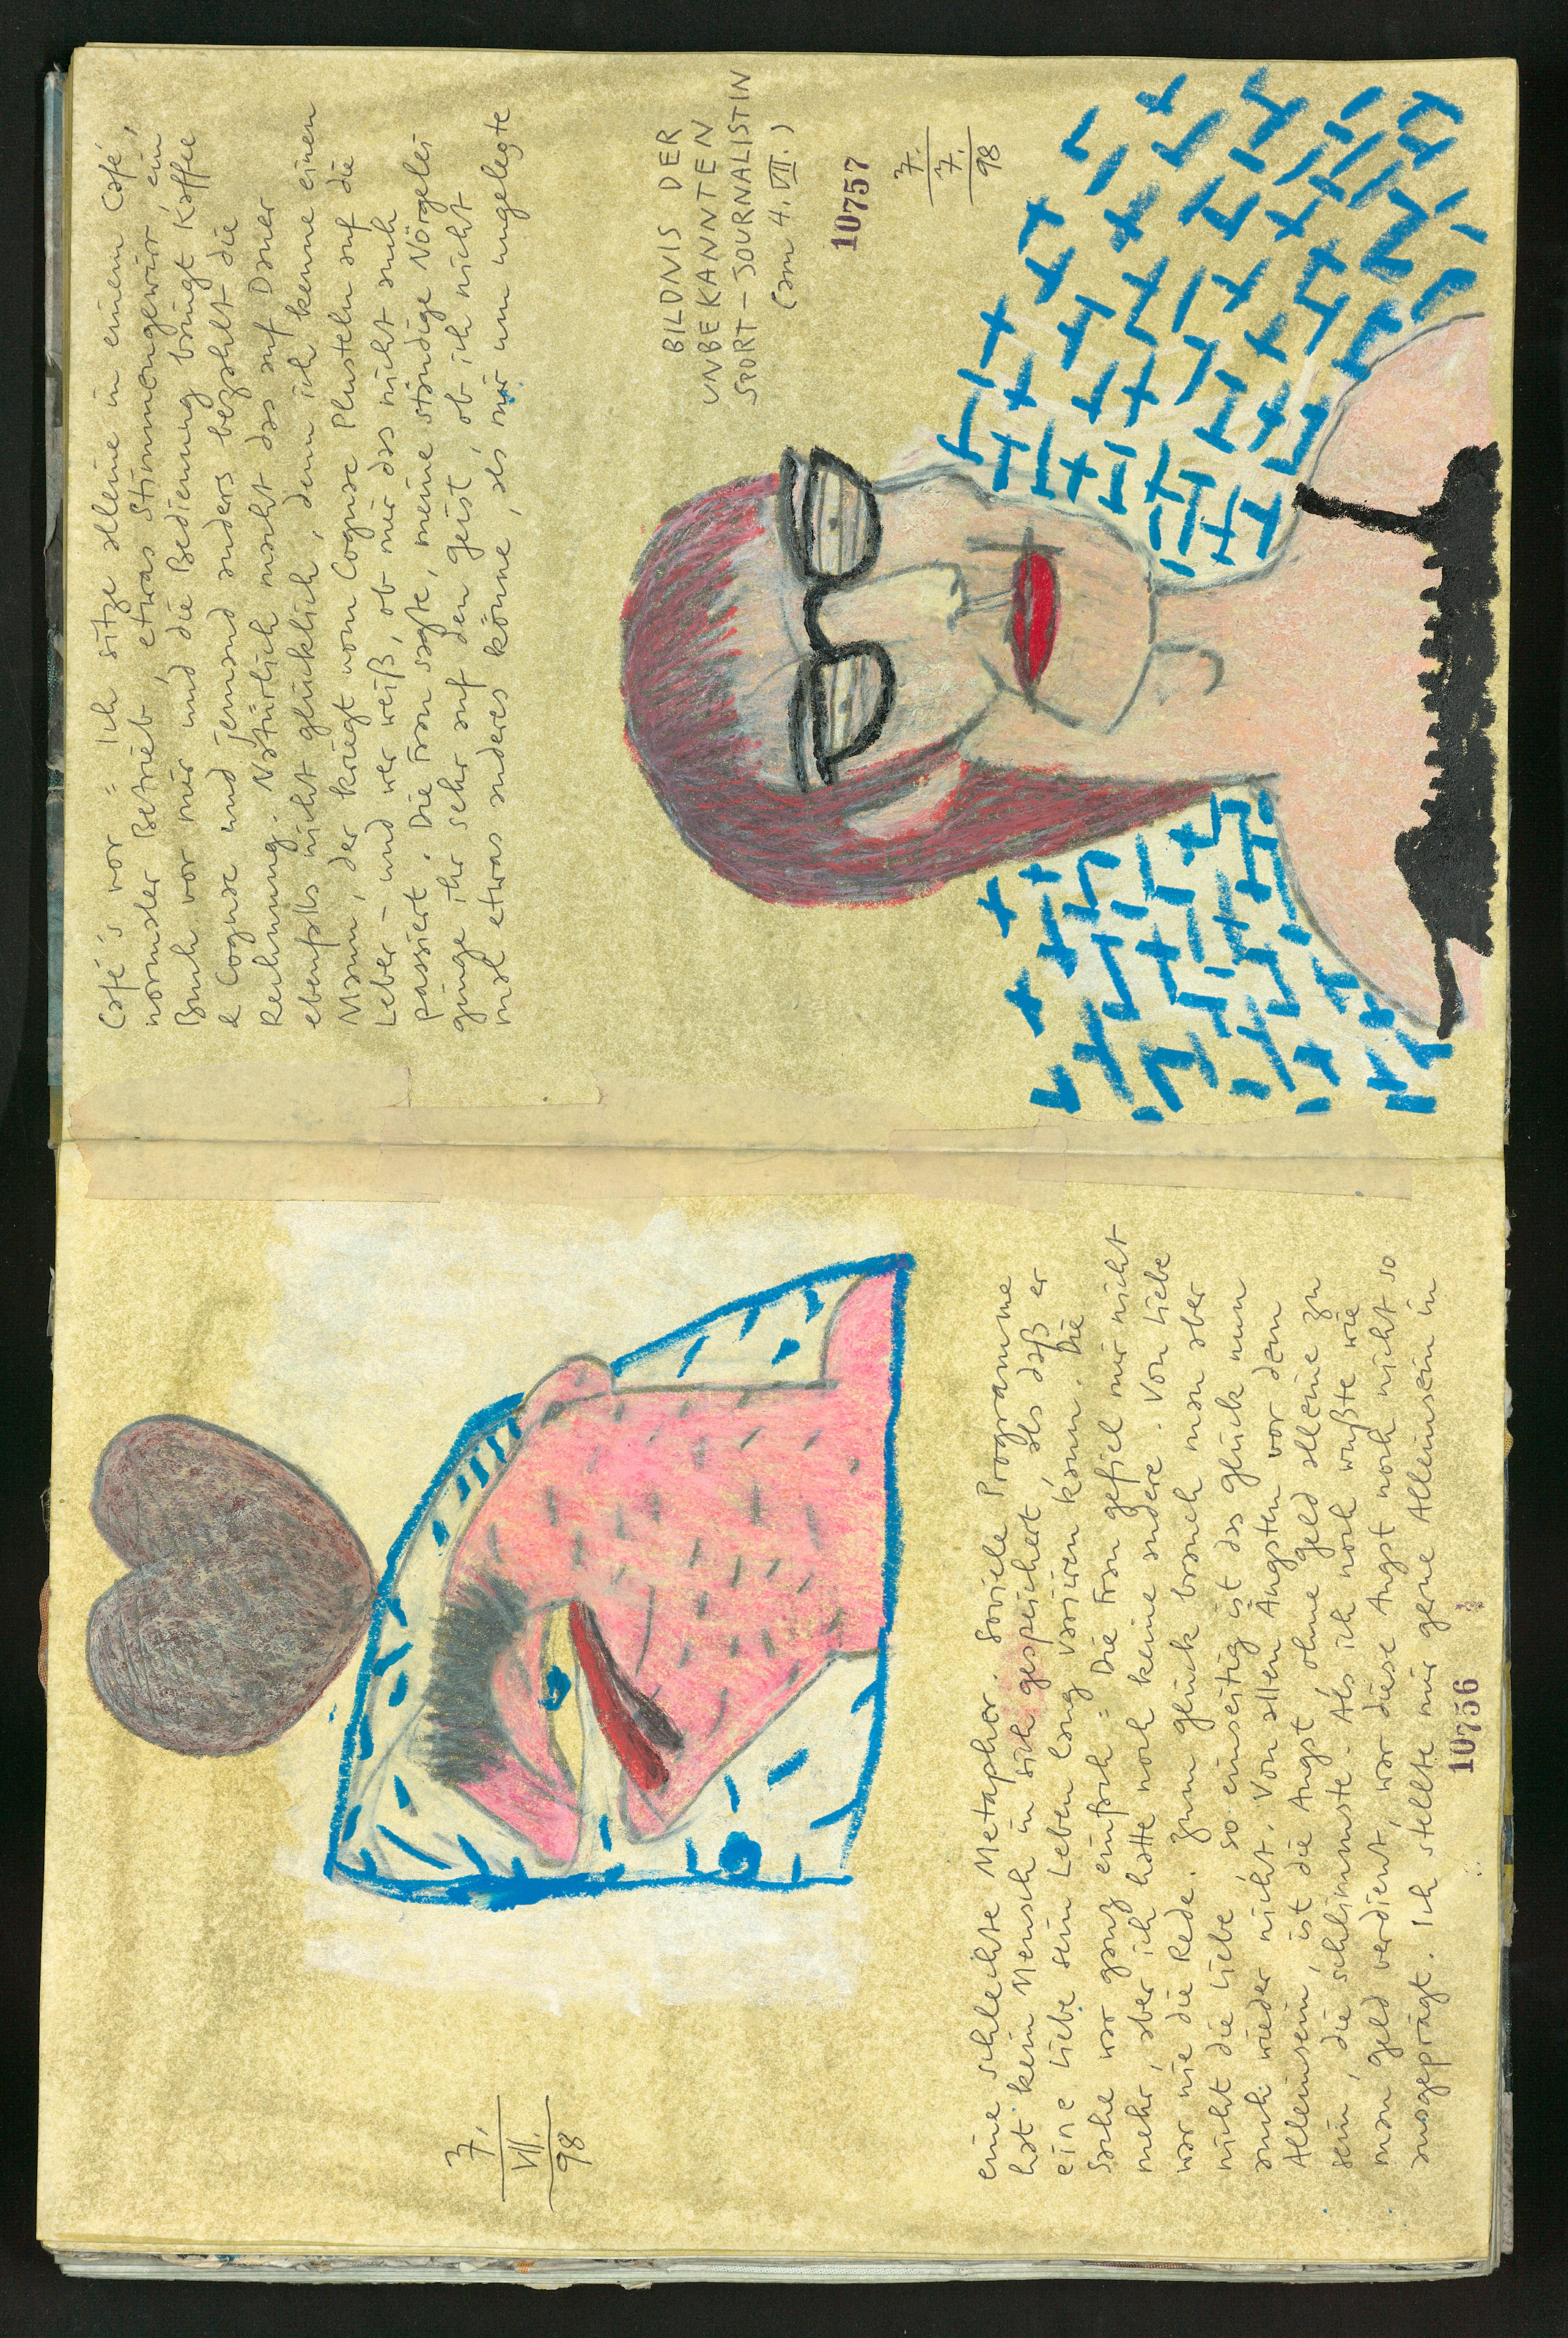 7.
VII.
98
eine schlechte Metapher. Soviele Programme
hat kein Mensch in sich gespeichert, als daß er
eine Liebe sein Leben lang variieren kann. Die
Sache war ganz einfach = Die Frau gefiel mir nicht
mehr, aber ich hatte noch keine andere. Von Liebe
war nie die Rede. Zum Glück brauch man aber
nicht die Liebe, so einseitig ist das Glück nun
auch wieder nicht. Von allen Ängsten vor dem
Alleinsein, ist die Angst ohne Geld alleine zu
sein, die schlimmste. Als ich noch wußte wie
man Geld verdient, war diese Angst noch nicht so
ausgeprägt. Ich stellte mir gerne Alleinsein in
10756
Café's vor = Ich sitze alleine in einem Café,
normaler Betrieb, etwas Stimmengewirr ein
Buch vor mir und die Bedienung bringt Kaffee
& Cognac und jemand anders bezahlt die
Rechnung. Natürlich macht das auf Dauer
ebenfalls nicht glücklich, denn ich kenne einen
Mann, der kriegt vom Cognac Pusteln auf die
Leber – und wer weiß, ob mir das nicht auch
passiert. Die Frau sagte, meine ständige Nörgelei
ginge ihr sehr auf den Geist, ob ich nicht
mal etwas anderes könne, als nur umgelegte
BILDNIS DER
UNBEKANNTEN
SPORT-JOURNALISTIN
(am 4. VII.)
10757
7.
7.
98